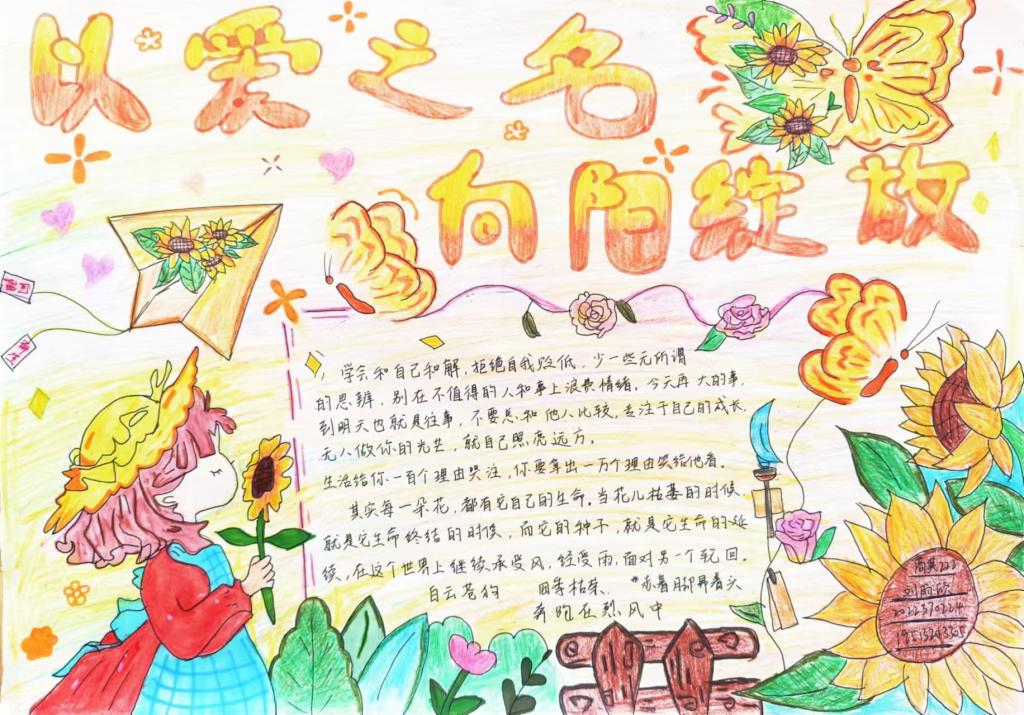 以爱之名
向阳绽放
学会和自己和解,拒绝自我贬低,少一些无所谓
的思辨,别在不值得的人和事上浪费情绪。今天再大的事,
到明天也就是往事,不要总和他人比较,专注于自己的成长,
无人做你的光芒,就自己照亮远方。
生活给你一百个理由哭泣,你要拿出一万个理由笑给他看。
其实每一朵花,都有它自己的生命。当花儿枯萎的时候,
就是它生命终结的时候,而它的种子,就是它生命的延
续,在这个世界上继续承受风,经受雨,面对另一个轮回。
白云苍狗 四季枯荣、"赤着脚昂着头
奔跑在烈风中
2022370224
19513243305